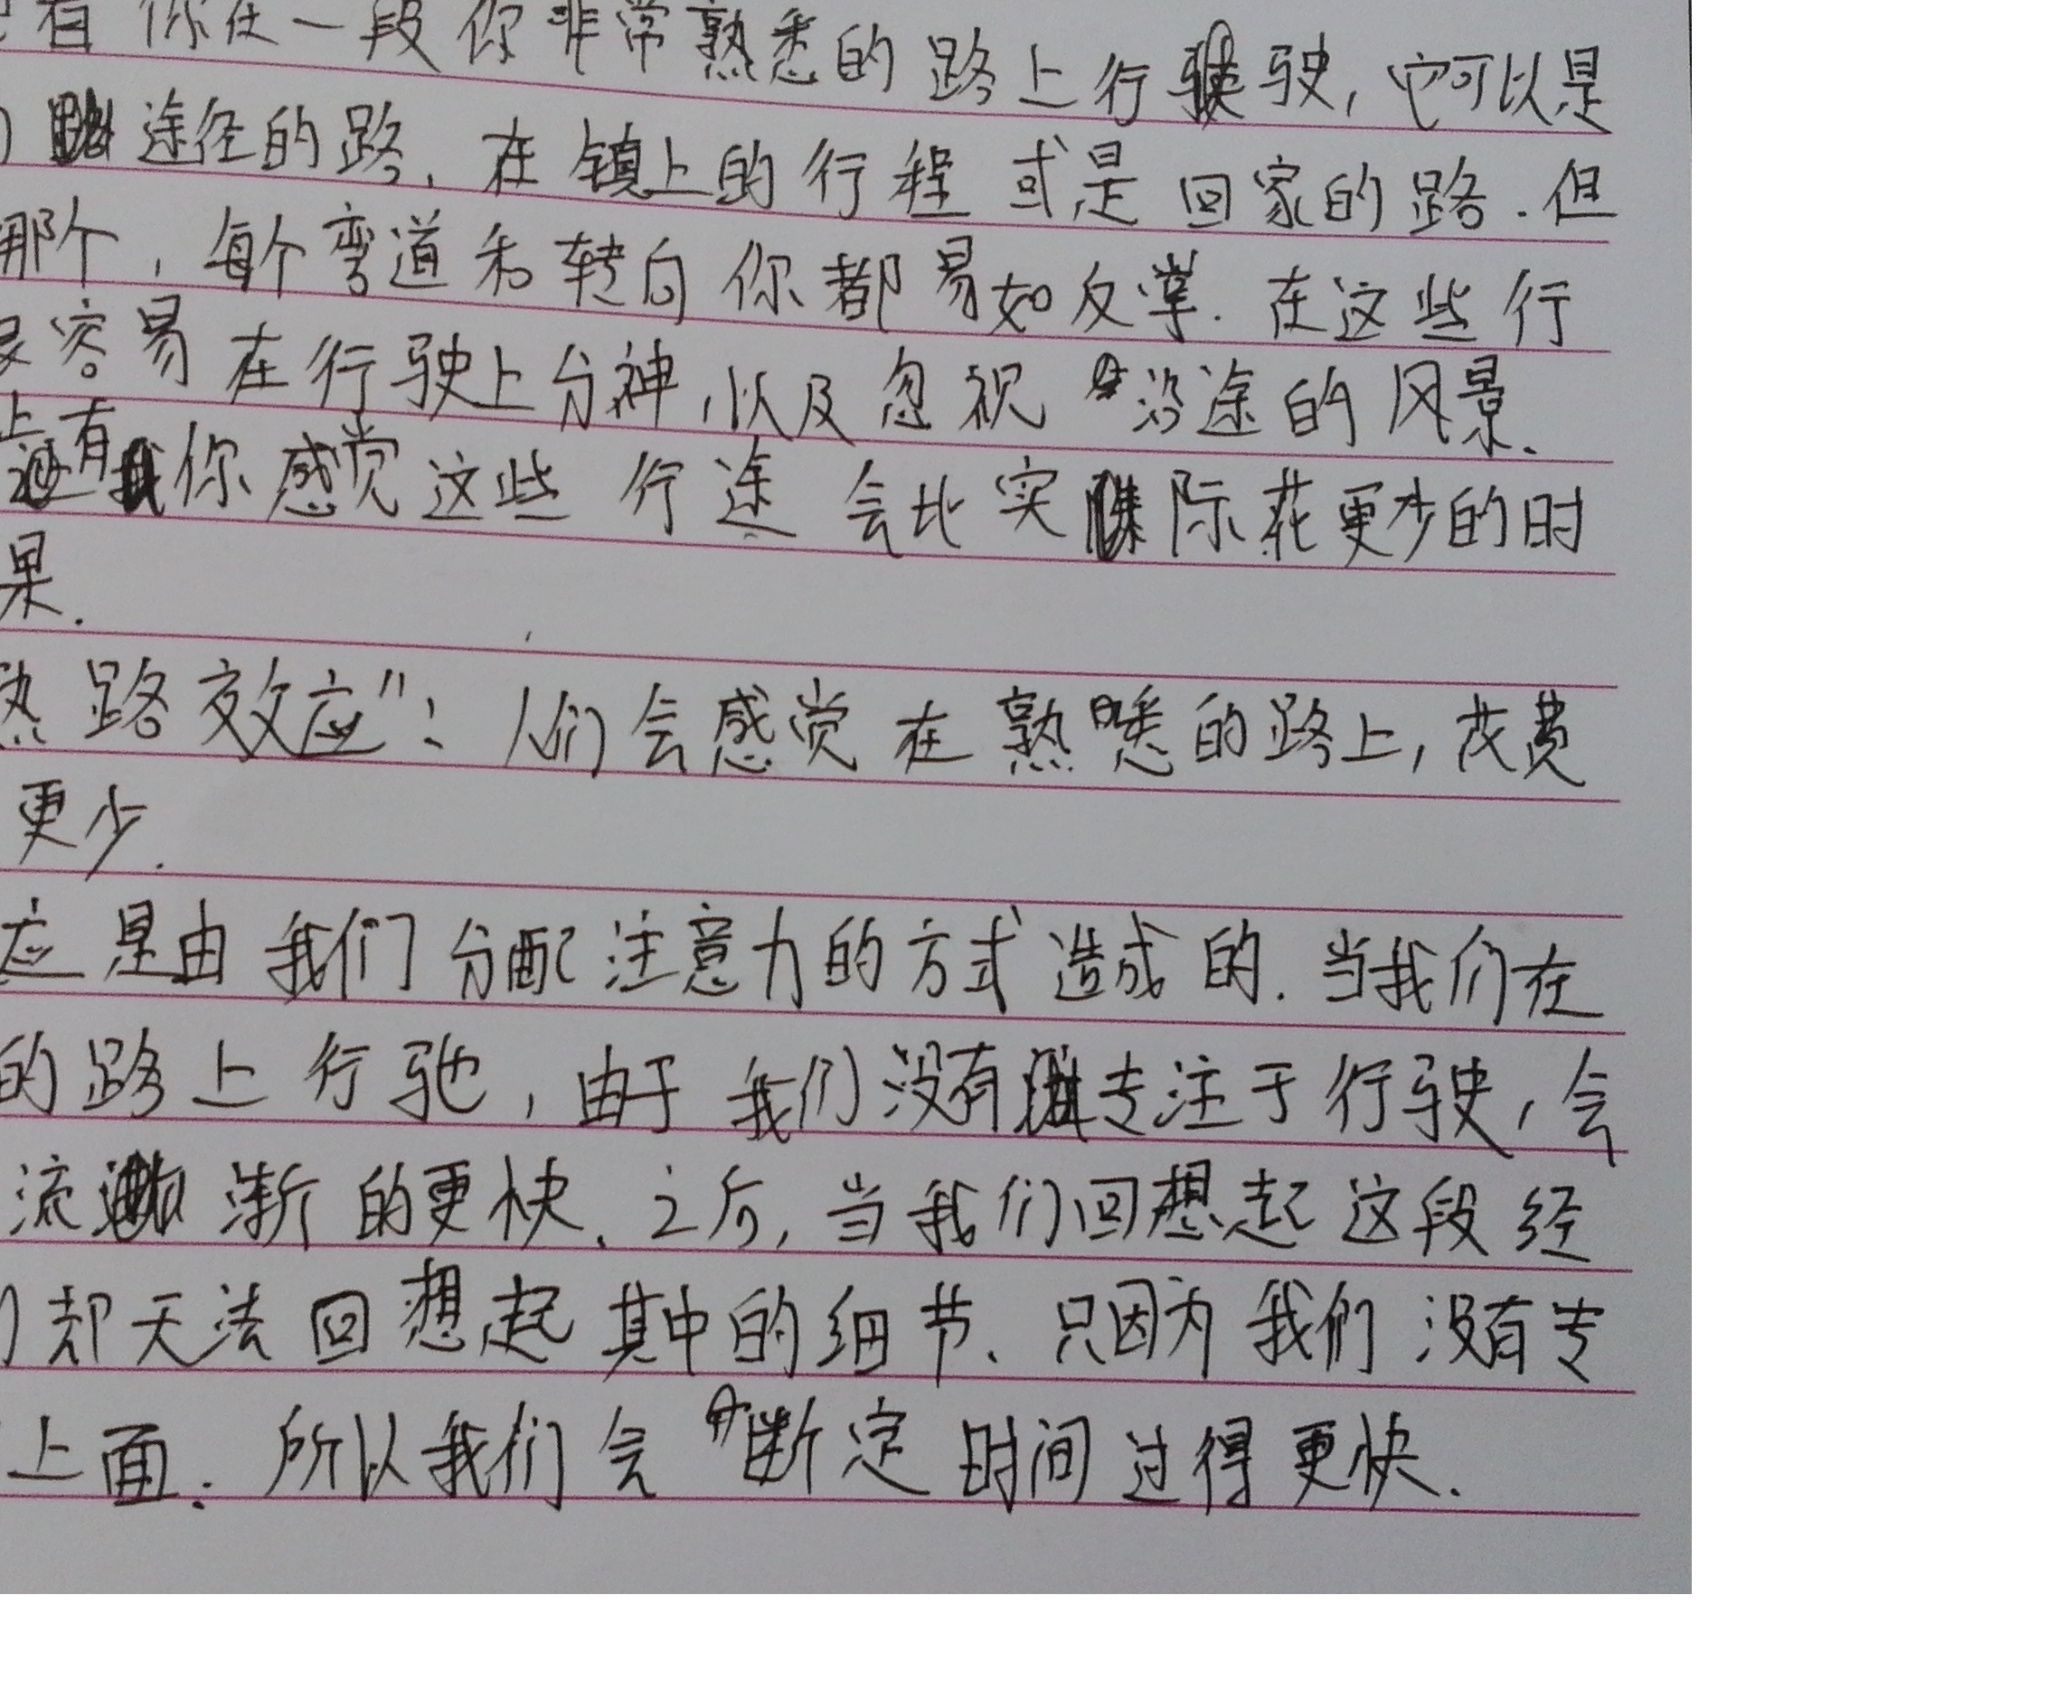 有你在一段你非常熟悉的路上行驶,它可以是
途径的路、在镇上的行程或是回家的路.但
那个,每个弯道和转向你都易如反掌.在这些行
容易在行驶上分神,以及忽视沿途的风景.
上有你感觉这些行途会比实际花更少的时
果.
路效应":人们会感觉在熟悉的路上,花费
更少.
应是由我们分配注意力的方式造成的.当我们在
的路上行驰,由于我们没有专注于行驶,会
流渐的更快、之后,当我们回想起这段经
却无法回想起其中的细节、只因为我们没有专
上面.所以我们会断定时间过得更快.